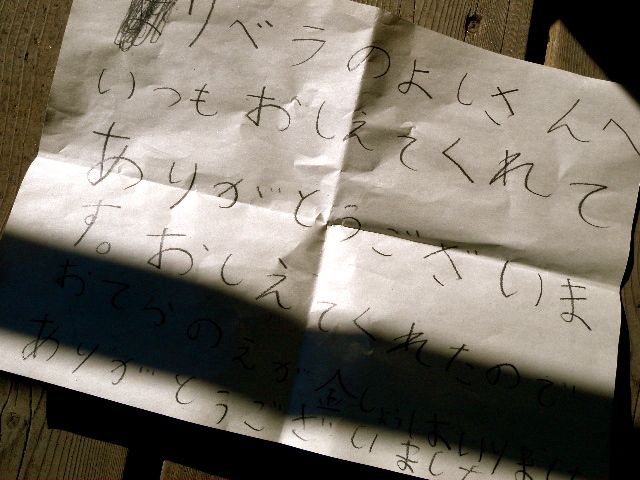 リベラのよしさんへ
いつもおしえてくれて
ありがとうございま
す。おしえてくれたので
おてらのえが金しょうはいりました
ありがとうございました